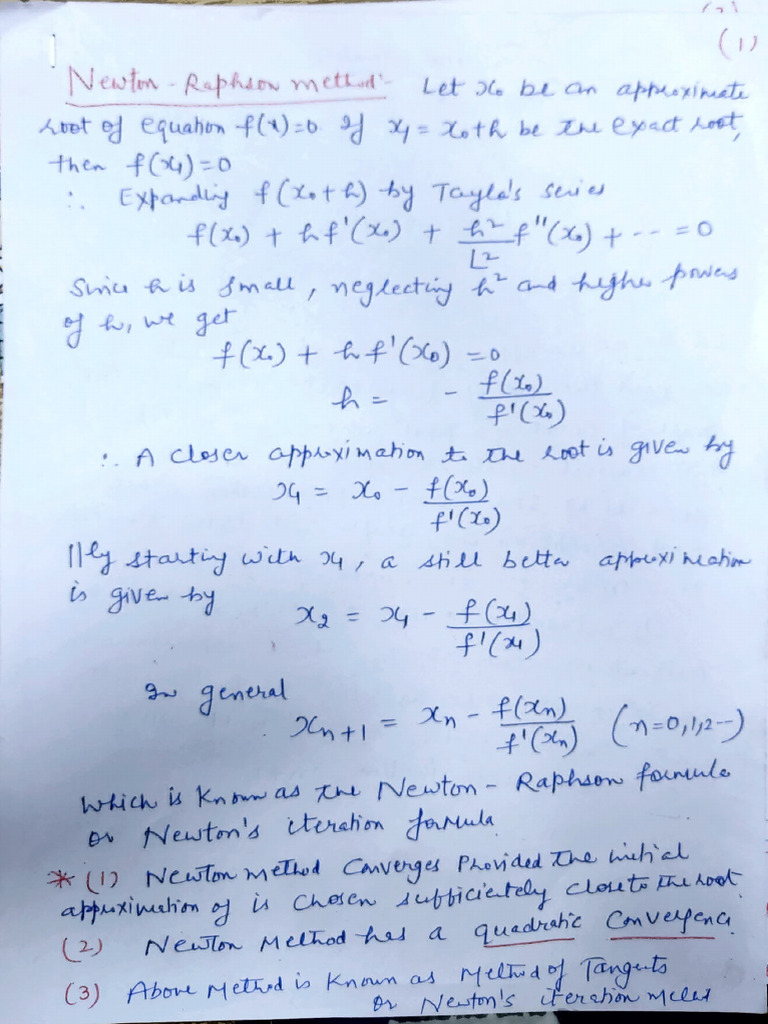 (1)
Newton-Raphson method:- Let x₀ be an approximate
root of equation f(x)=0 If x₁ = x₀+h be the exact root,
then f(x₁)=0
∴ Expanding f(x₀+h) by Taylo's series
f(x₀) + hf'(x₀) + h²/∟2 f''(x₀) + --- = 0
Since h is small, neglecting h² and higher powers
of h, we get
f(x₀) + hf'(x₀) = 0
h = - f(x₀)/f'(x₀)
∴ A closer approximation to the root is given by
x₁ = x₀ - f(x₀)/f'(x₀)
||ly starting with x₁, a still better approximation
is given by
x₂ = x₁ - f(x₁)/f'(x₁)
In general
xₙ₊₁ = xₙ - f(xₙ)/f'(xₙ) (n=0,1,2--)
Which is known as the Newton-Raphson formula
or Newton's iteration formula
* (1) Newton method Converges Provided the initial
approximation of is chosen sufficiently close to the root
(2) Newton Method has a quadratic Convergenc.
(3) Above Method is Known as Method of Tangents
or Newton's iteration